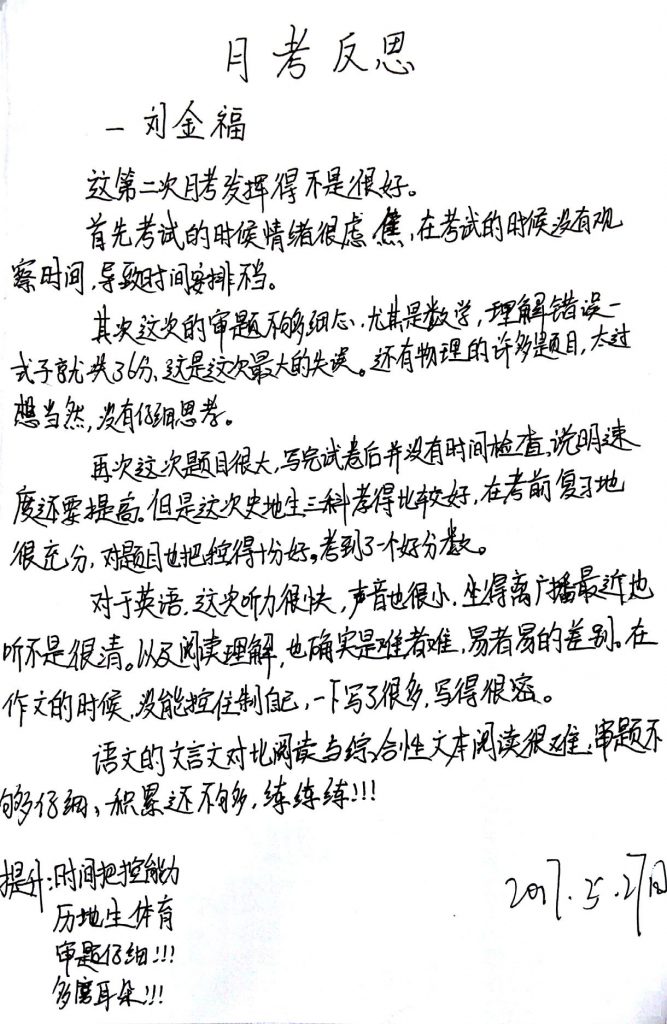 月考反思
一 刘金福
这第二次月考发挥得不是很好。
首先考试的时候情绪很虑焦,在考试的时候没有观
察时间,导致时间安排不当。
其次这次的审题不够细心,尤其是数学,理解错误一
式子就失36分,这是这次最大的失误。还有物理的许多题目,太过
想当然,没有仔细思考。
再次这次题目很大,写完试卷后并没有时间检查,说明速
度还要提高。但是这次史地生三科考得比较好,在考前复习地
很充分,对题目也把控得十分好,考到了一个好分数。
对于英语,这次听力很快,声音也很小,坐得离广播最近也
听不是很清。以及阅读理解,也确实是难者难,易者易的差别。在
作文的时候,没能控住制自己,一下写了很多,写得很密。
语文的文言文对比阅读与综合性文本阅读很难,审题不
够仔细,积累还不够,练练练!!!
提升:时间把控能力
历地生体育
审题仔细!!!
多磨耳朵!!!
2017.5.27日